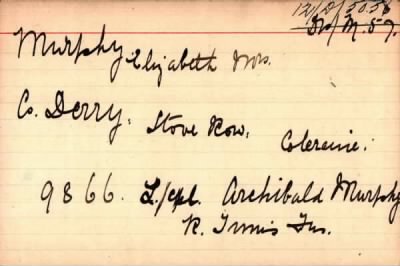 12/D/3056
Murphy Elizabeth Mrs.
Co. Derry. Stove Row. Coleraine.
9866. L/cpl. Archibald Murphy
R. Innis Fus.